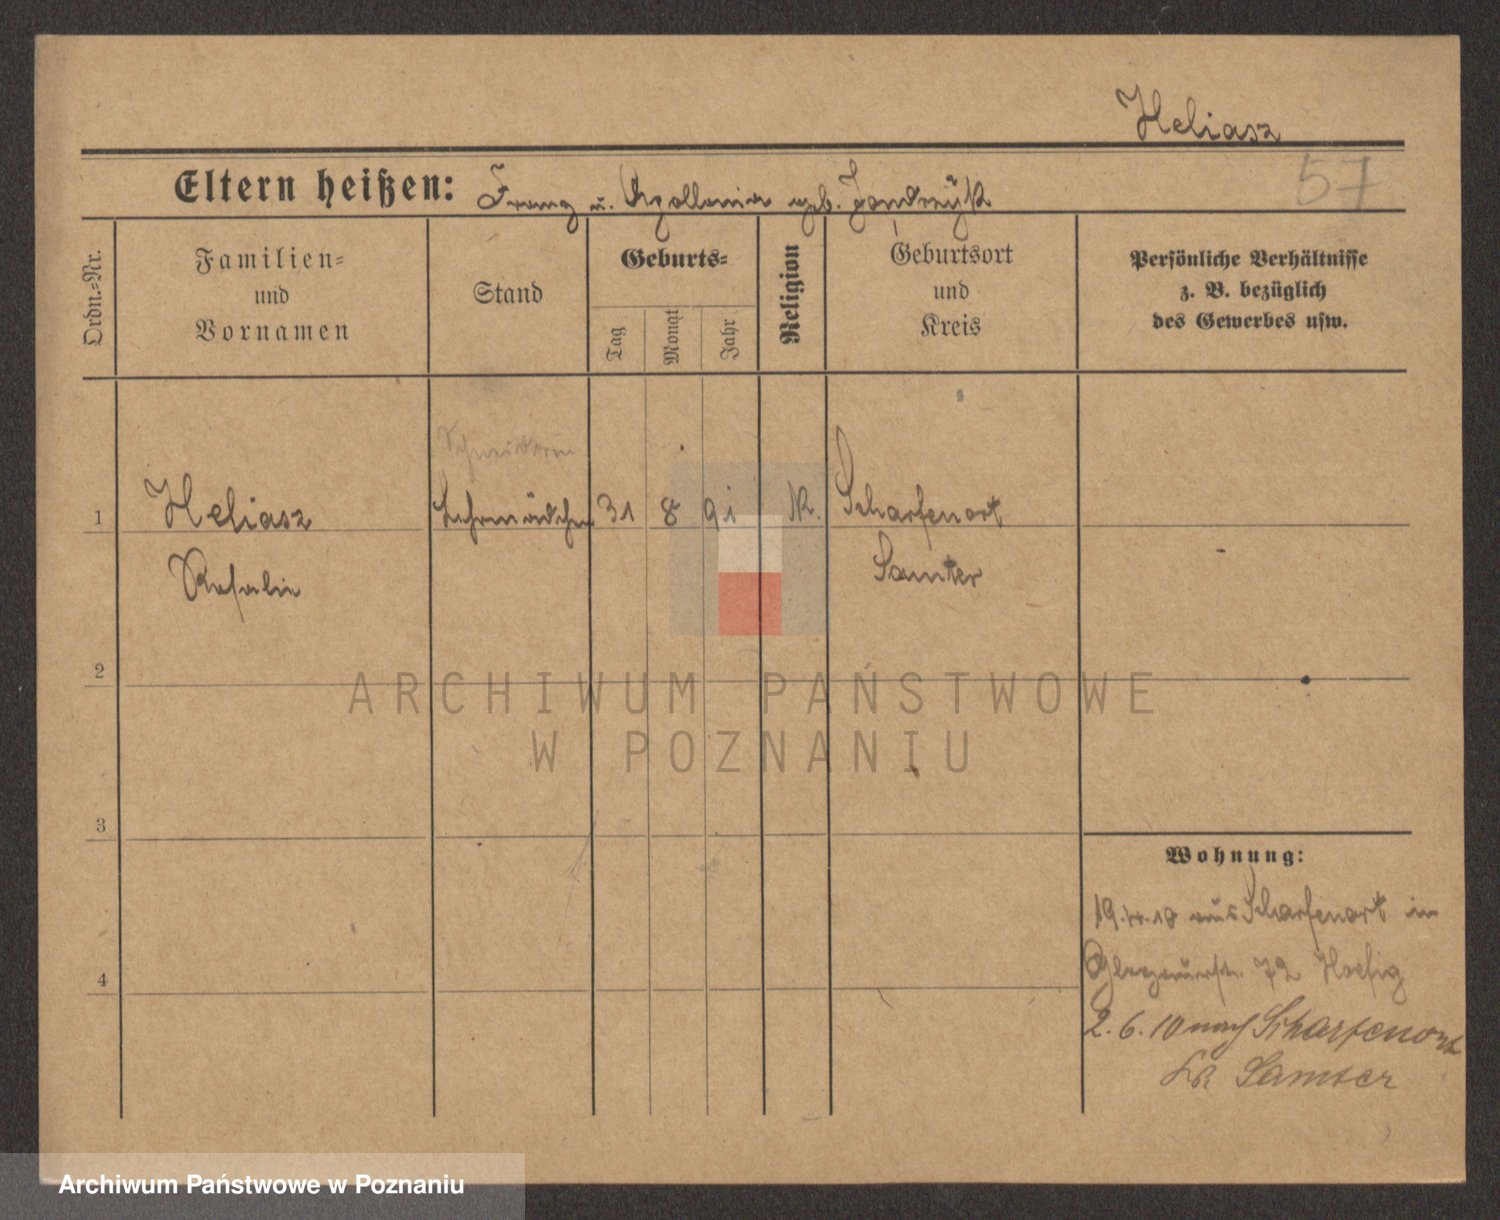 Heliasz
57
Eltern heißen: Franz u. Apollonia geb.
Ordn.-Nr.
Familien-
und
Vornamen
Stand
Geburts-
Tag
Monat
Jahr
Religion
Geburtsort
und
Kreis
Persönliche Verhältnisse
z. B. bezüglich
des Gewerbes usw.
Schneiderin
1 Heliasz Lehrmädchen 31 8 91 K. Scharfenort
Rosalie Samter
2
ARCHIWUM PAŃSTWOWE
W POZNANIU
3
Wohnung:
19.4.10 aus Scharfenort in
72
4
2.6.10 nach Scharfenort
Kr. Samter
Archiwum Państwowe w Poznaniu